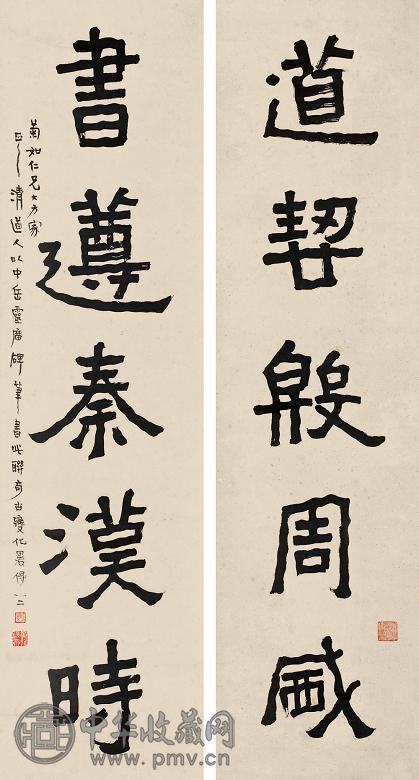 道契殷周
書遵秦漢時
菊如仁兄大方家
正之 清道人以中岳靈廟碑筆書此聯奇古變化畧得一二
中华收藏网
www.pmv.cn